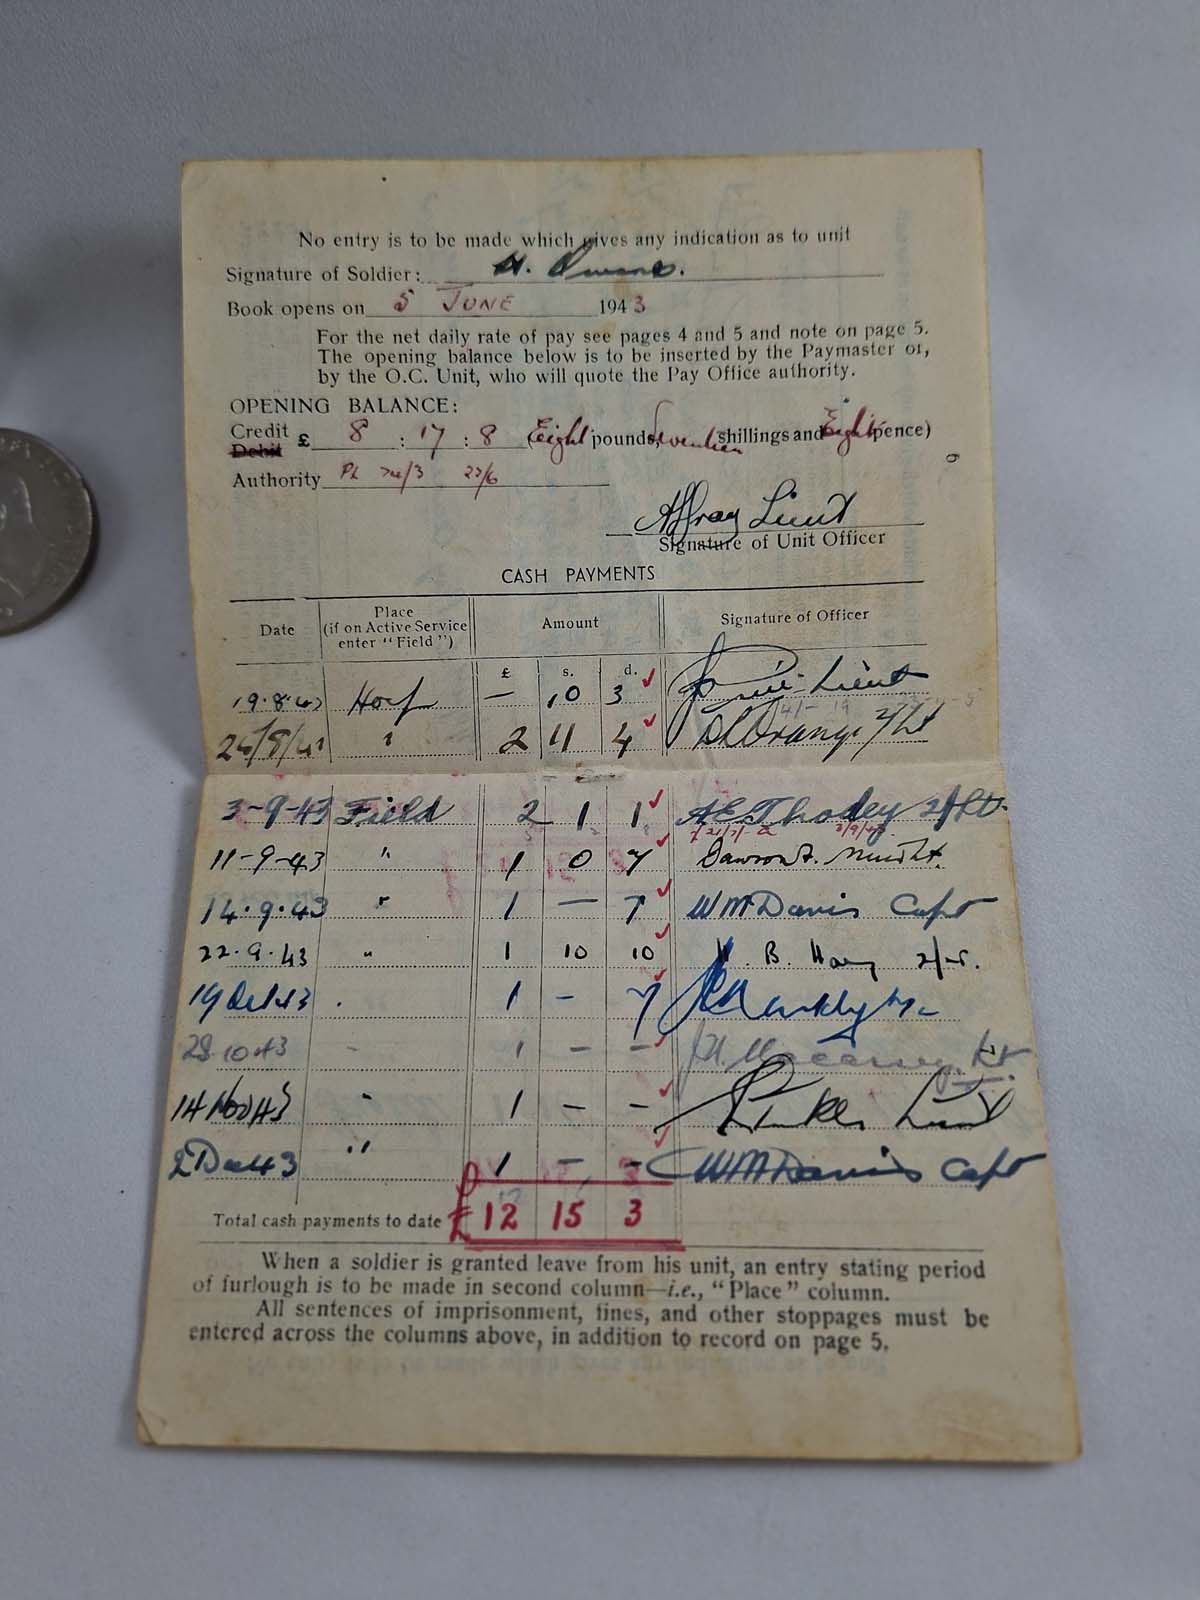 No entry is to be made which gives any indication as to unit
Signature of Soldier: H.
Book opens on 5 JUNE 1943
For the net daily rate of pay see pages 4 and 5 and note on page 5.
The opening balance below is to be inserted by the Paymaster or,
by the O.C. Unit, who will quote the Pay Office authority.
OPENING BALANCE:
Credit £ 8 : 17 : 8 (Eight pounds, Seventeen shillings and Eight pence)
Debit
Authority 22/6
Lieut
Signature of Unit Officer
9
CASH PAYMENTS
Date Place (if on Active Service enter "Field") Amount Signature of Officer
£ s. d.
19.8.43 — 10 3 Lieut
2 11 4 2/Lt
3-9-43 Field 2 1 1 A E Thodey 2/Lt.
11-9-43 " 1 0 7
14.9.43 " 1 — 7 WM Davis Capt
22.9.43 " 1 10 10 B.
19 Oct 43 . 1 - 7
28.10.43 - 1 — — Lt
14 Nov 43 " 1 — — Lieut
2 Dec 43 " 1 — — WM Davis Capt
Total cash payments to date £ 12 15 3
When a soldier is granted leave from his unit, an entry stating period
of furlough is to be made in second column—i.e., "Place" column.
All sentences of imprisonment, fines, and other stoppages must be
entered across the columns above, in addition to record on page 5.